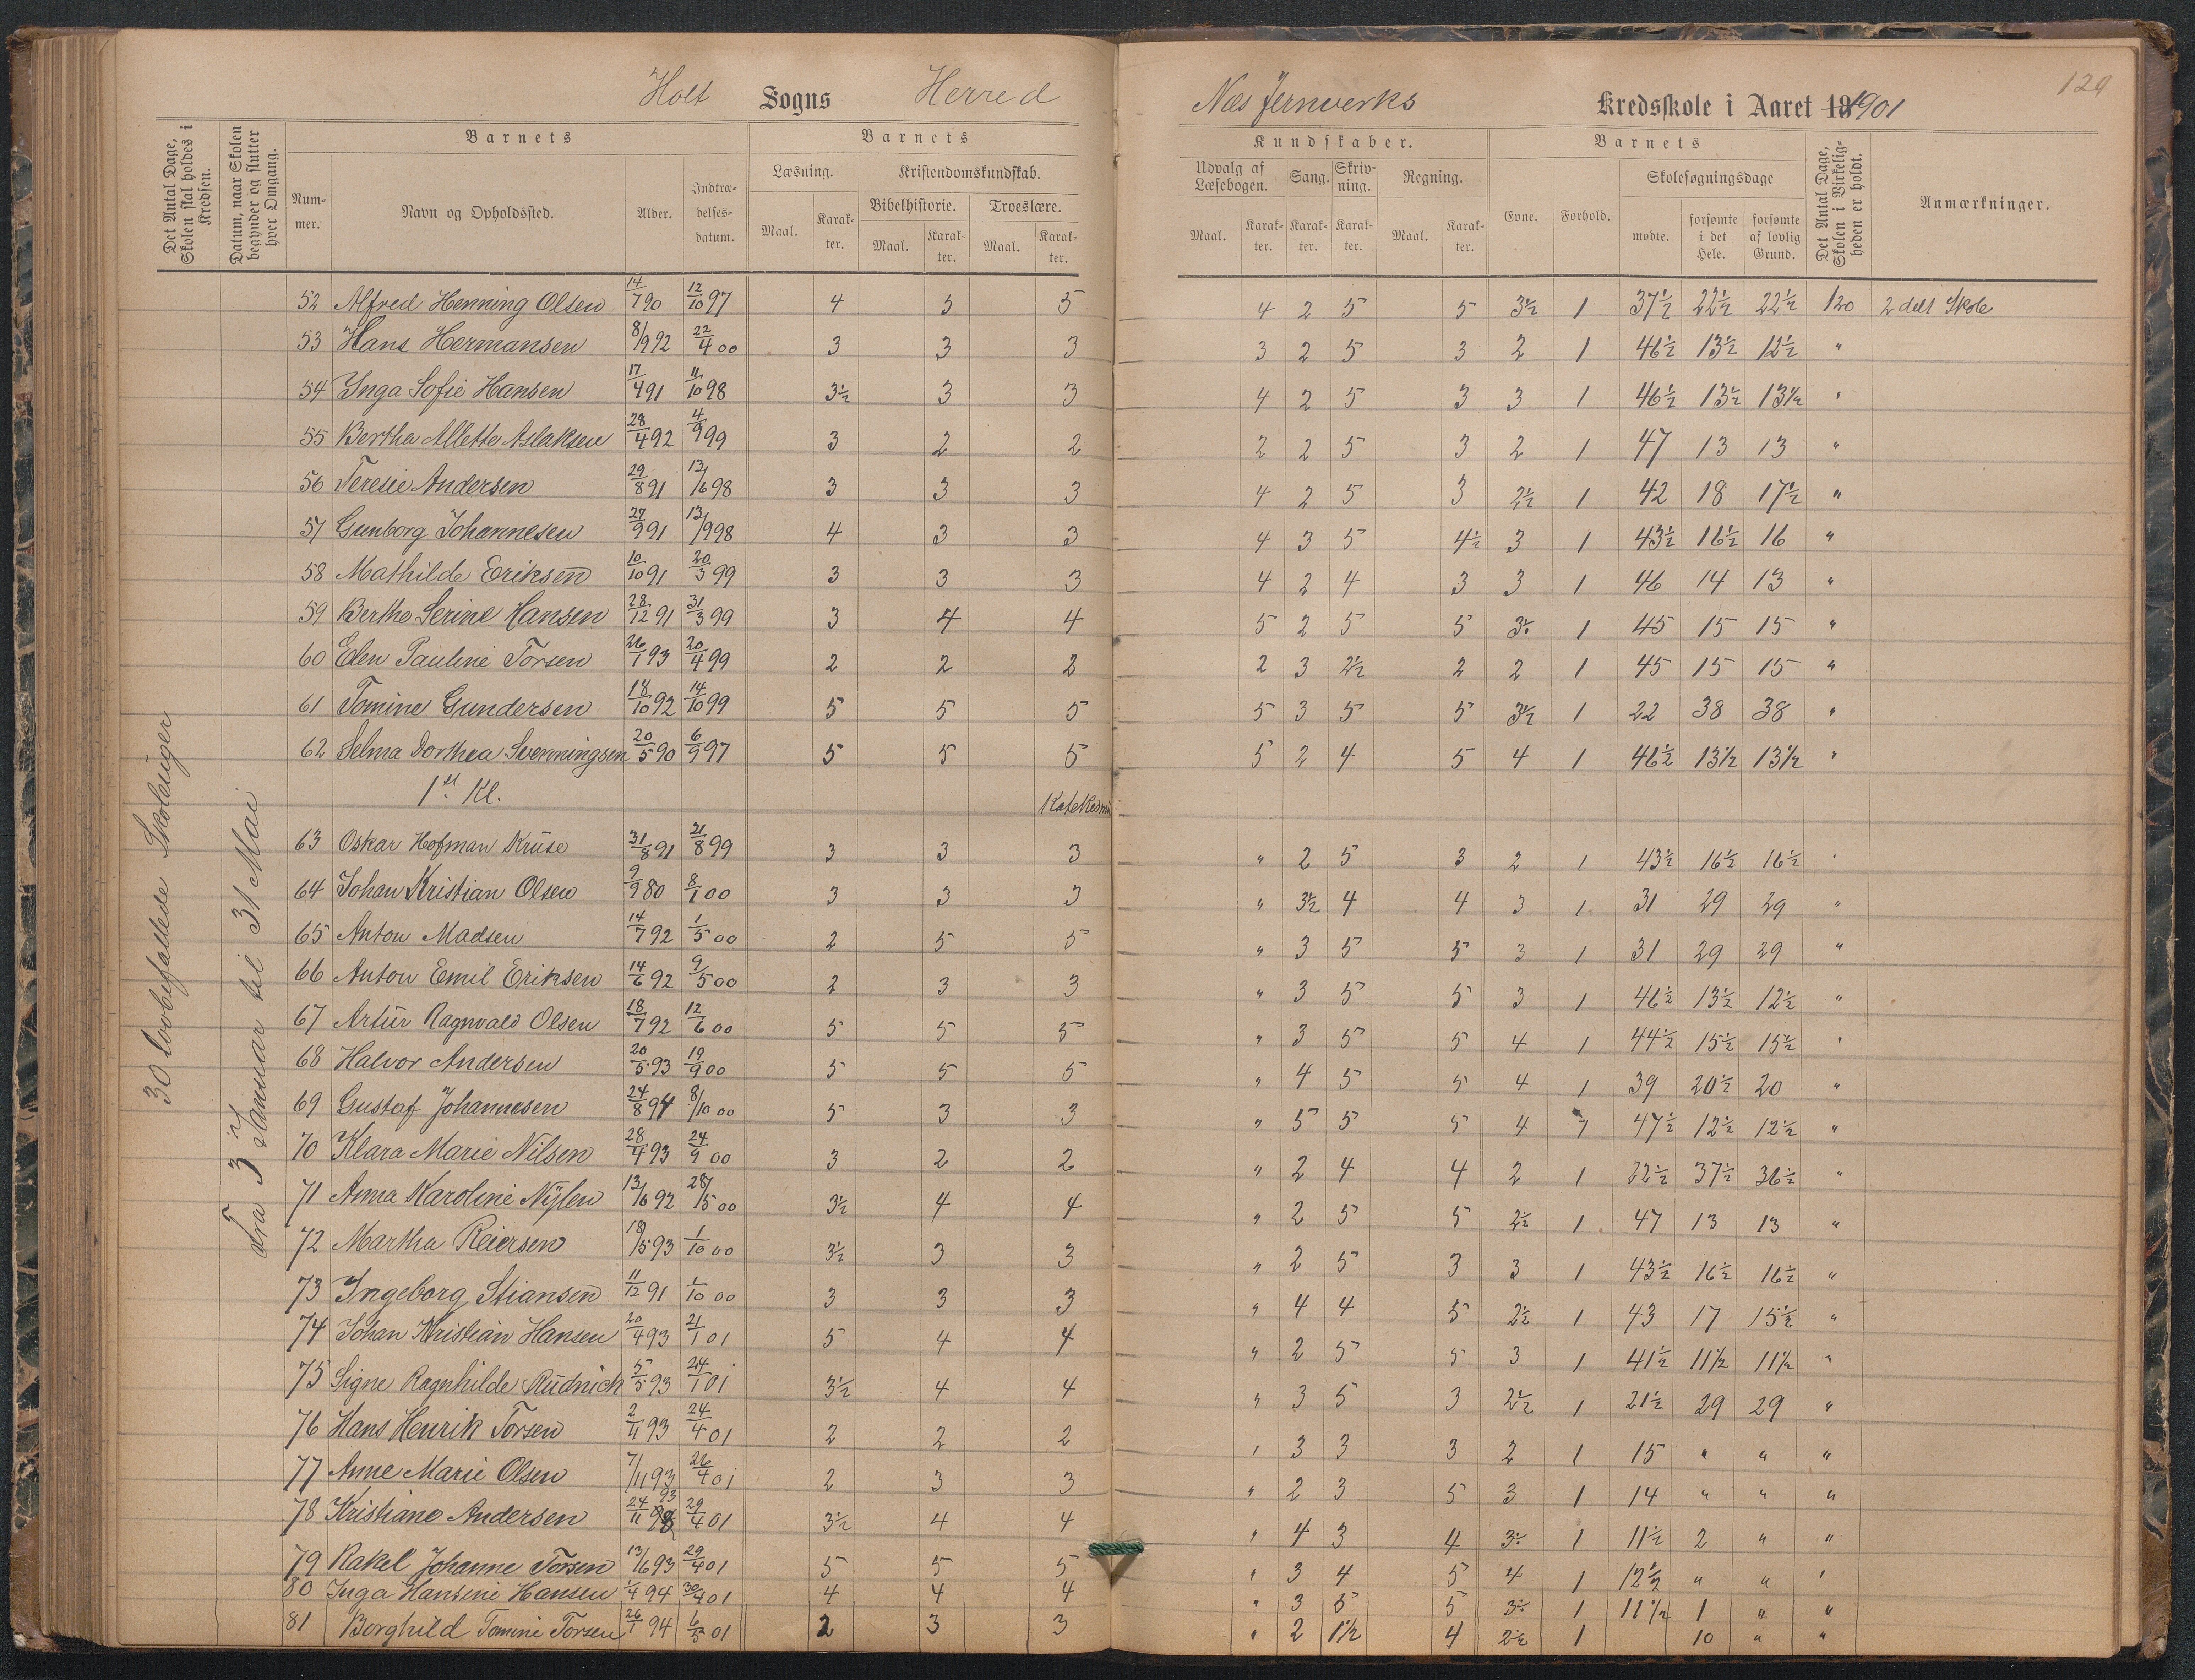 129
Holt Sogns Herred Næs Jernverks Kredsskole i Aaret 18 1901
Det Antal Dage, Skolen skal holdes i Kredsen.
Datum, naar Skolen begynder og slutter hver Omgang.
Barnets
Barnets
Kundskaber.
Barnets
Det Antal Dage, Skolen i Virkeligheden er holdt.
Anmærkninger.
Num-mer.
Navn og Opholdssted.
Alder.
Indtræ-delses-datum.
Læsning.
Kristendomskundskab.
Bibelhistorie.
Troeslære.
Maal. Karak-ter. Maal. Karak-ter. Maal. Karak-ter.
Udvalg af Læsebogen. Sang. Skriv-ning. Regning. Evne. Forhold. Skolesøgningsdage
Maal. Karak-ter. Karak-ter. Karak-ter. Maal. Karak-ter. mødte. forsømte i det Hele. forsømte af lovlig Grund.
30 lovbefallede Skoleuger
Fra 3 Januar til 31 Mai
52 Alfred Henning Olsen 14/7 90 12/10 97 4 3 5 4 2 5 5 3½ 1 37½ 22½ 22½ 120 2 delt Skole
53 Hans Hermansen 8/9 92 22/4 00 3 3 3 3 2 5 3 2 1 46½ 13½ 12½ "
54 Inga Sofie Hansen 17/4 91 11/10 98 3½ 3 3 4 2 5 3 3 1 46½ 13½ 13½ "
55 Bertha Allette Aslaksen 28/4 92 4/9 99 3 2 2 2 2 5 3 2 1 47 13 13 "
56 Teresie Andersen 29/8 91 13/6 98 3 3 3 4 2 5 3 2½ 1 42 18 17½ "
57 Gunborg Johannesen 27/9 91 13/9 98 4 3 3 4 3 5 4½ 3 1 43½ 16½ 16 "
58 Mathilde Eriksen 10/10 91 20/3 99 3 3 3 4 2 4 3 3 1 46 14 13 "
59 Berthe Serine Hansen 28/12 91 31/3 99 3 4 4 5 2 5 5 3÷ 1 45 15 15 "
60 Elen Pauline Torsen 26/1 93 20/4 99 2 2 2 2 3 2½ 2 2 1 45 15 15 "
61 Tomine Gundersen 18/10 92 14/10 99 5 5 5 5 3 5 5 3½ 1 22 38 38 "
62 Selma Dorthea Svenningsen 20/5 90 6/9 97 5 5 5 5 2 4 5 4 1 46½ 13½ 13½ "
1st Kl. Katekism
63 Oskar Hofman Kruse 31/8 91 21/8 99 3 3 3 " 2 5 3 2 1 43½ 16½ 16½ "
64 Johan Kristian Olsen 9/9 80 8/1 00 3 3 3 " 3½ 4 4 3 1 31 29 29 "
65 Anton Madsen 14/7 92 1/5 00 2 5 5 " 3 5 5 3 1 31 29 29 "
66 Anton Emil Eriksen 14/6 92 9/5 00 2 3 3 " 3 5 5 3 1 46½ 13½ 12½ "
67 Artur Ragnvald Olsen 18/7 92 12/6 00 5 5 5 " 3 5 5 4 1 44½ 15½ 15½ "
68 Halvor Andersen 20/5 93 19/9 00 5 5 5 " 4 5 5 4 1 39 20½ 20 "
69 Gustaf Johannesen 24/8 94 8/10 00 5 3 3 " 5 5 5 4 1 47½ 12½ 12½ "
70 Klara Marie Nilsen 28/4 93 24/9 00 3 2 2 " 2 4 4 2 1 22½ 37½ 36½ "
71 Anna Karoline Nylen 13/6 92 28/5 00 3½ 4 4 " 2 5 5 2½ 1 47 13 13 "
72 Martha Reiersen 18/5 93 1/10 00 3½ 3 3 " 2 5 3 3 1 43½ 16½ 16½ "
73 Ingeborg Stiansen 11/12 91 1/10 00 3 3 3 " 4 4 5 2½ 1 43 17 15½ "
74 Johan Kristian Hansen 20/4 93 21/1 01 5 4 4 " 2 5 5 3 1 41½ 11½ 11½ "
75 Signe Ragnhilde Rudnick 5/5 93 24/1 01 3½ 4 4 " 3 5 3 2½ 1 21½ 29 29 "
76 Hans Henrik Torsen 2/11 93 24/4 01 2 2 2 " 3 3 3 2 1 15 " " "
77 Anne Marie Olsen 7/11 93 26/4 01 2 3 3 " 2 3 5 3 1 14 " " "
78 Kristiane Andersen 24/11 93 29/4 01 3½ 4 4 " 4 3 4 3÷ 1 11½ 2 " "
79 Rakel Johanne Torsen 13/6 93 29/4 01 5 5 5 " 3 4 5 4 1 12½ " " "
80 Inga Hansine Hansen 1/4 94 30/4 01 4 4 4 " 3 5 5 3÷ 1 11½ 1 " "
81 Borghild Tomine Torsen 26/1 94 6/5 01 2 3 3 " 2 1½ 4 2½ 1 10 " "